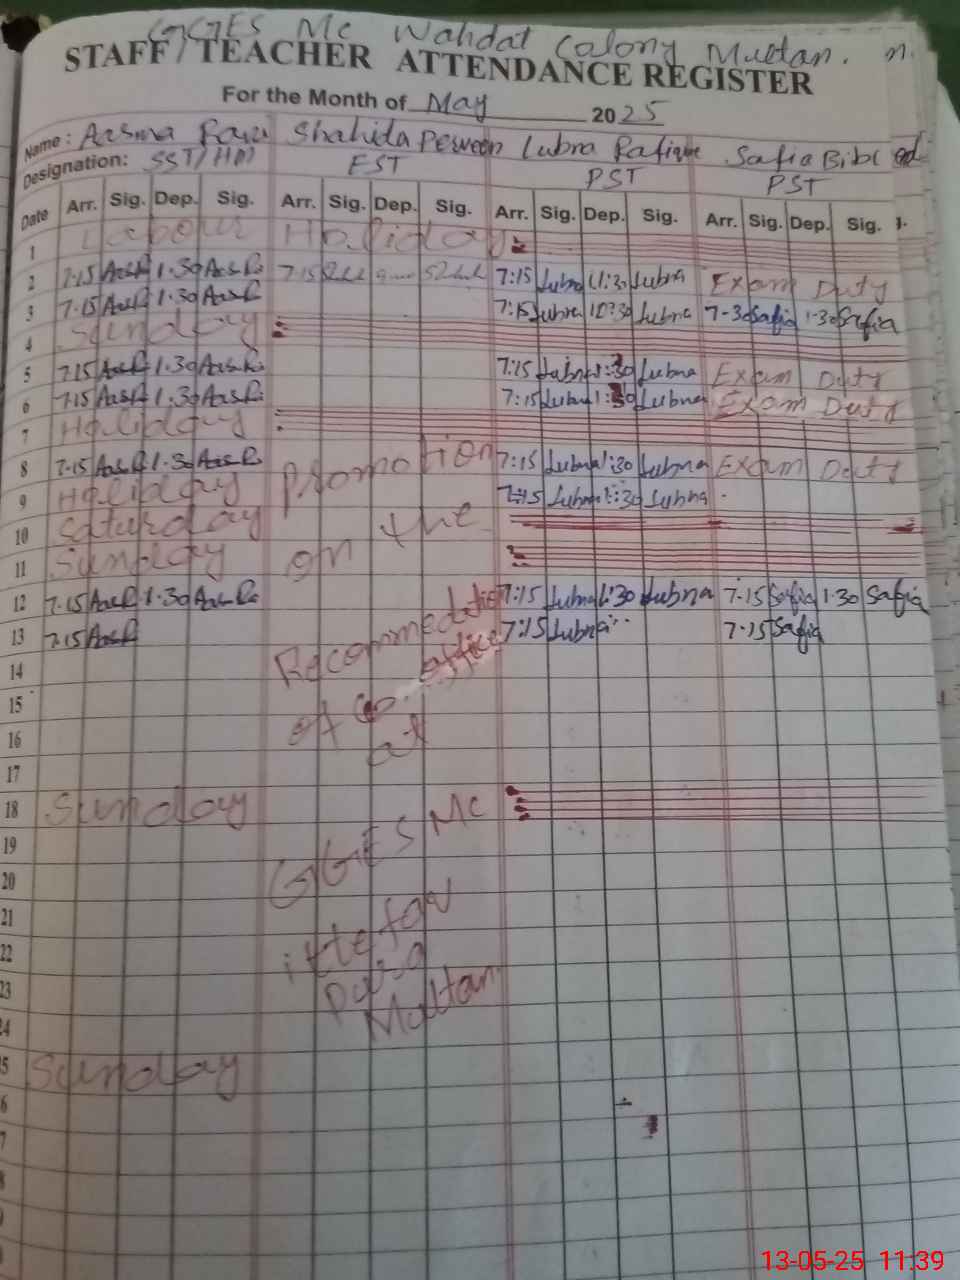 GGES Mc Wahdat Colony Multan.
STAFF / TEACHER ATTENDANCE REGISTER
For the Month of May 2025
Name: Aasma Shahida Perveen Lubna Rafique Safia Bibi
Designation: SST/HM EST PST PST
Date Arr. Sig. Dep. Sig. Arr. Sig. Dep. Sig. Arr. Sig. Dep. Sig. Arr. Sig. Dep. Sig.
1 Labour Holiday
2 7.15 Aas.R 1.30 Aas.R 7.15 7:15 Lubna 1:30 Lubna Exam Duty
3 7.15 Aas.R 1.30 Aas.R 7:15 Lubna 10:30 Lubna 7-30 Safia 1.30 Safia
4 Sunday
5 7.15 Aas.R 1.30 Aas.R 7:15 Lubna 1:30 Lubna Exam Duty
6 7.15 Aas.R 1.30 Aas.R 7:15 Lubna 1:30 Lubna Exam Duty
7 Holiday
8 7.15 Aas.R 1.30 Aas.R Promotion 7:15 Lubna 1:30 Lubna Exam Duty
9 Holiday 7:15 Lubna 1:30 Lubna
10 Saturday on the
11 Sunday
12 7.15 Aas.R 1.30 Aas.R 7:15 Lubna 1:30 Lubna 7.15 Safia 1.30 Safia
13 7.15 Aas.R Recommedation 7:15 Lubna 7.15 Safia
14 office
15 of
16 at
17
18 Sunday
19 GGES Mc
20
21
22 ittefaq
23 Pura
24 Multan
5 Sunday
6
7
8
13-05-25 11:39